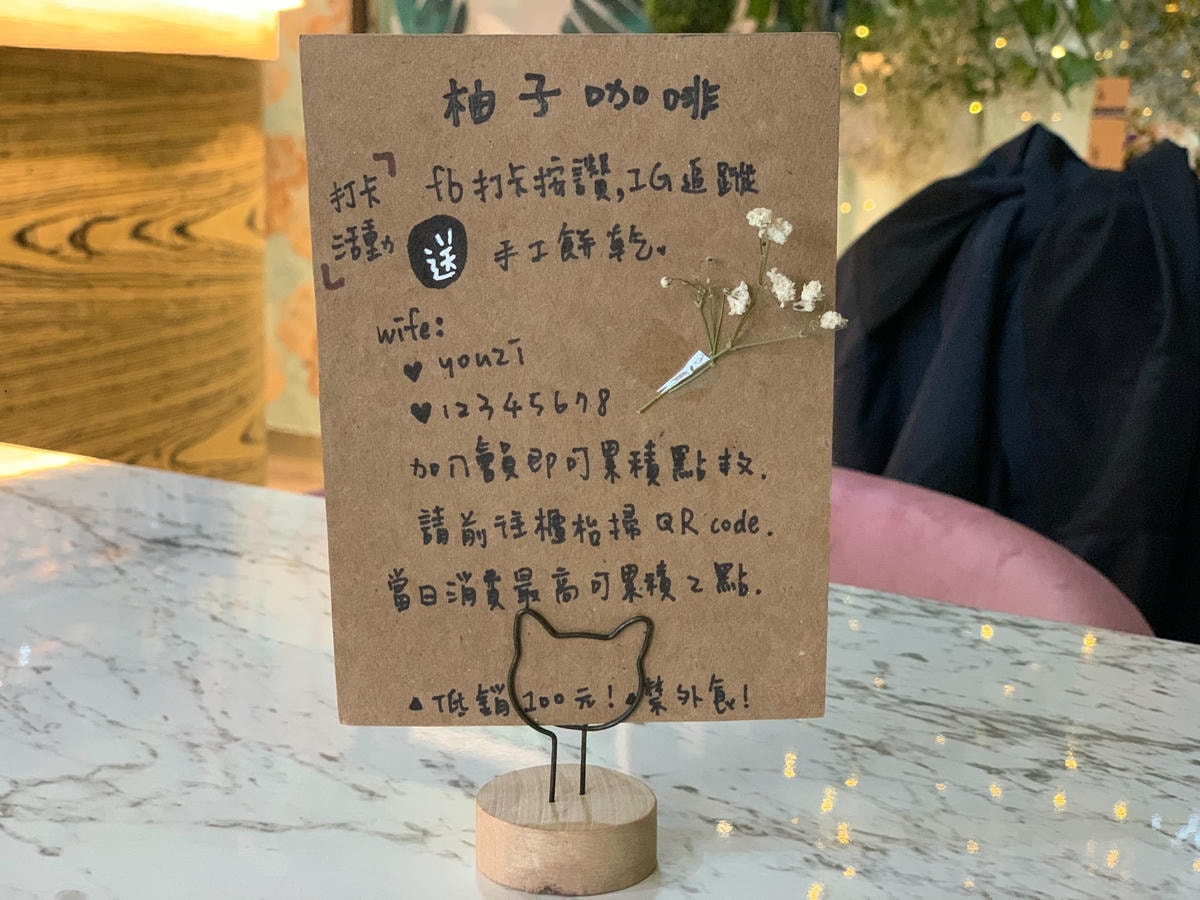 柚子咖啡
「打卡活動」
fb打卡按讚,IG追蹤
送 手工餅乾。
wife:
♥ youzi
♥ 12345678
加入會員即可累積點數.
請前往櫃枱掃 QR code.
當日消費最高可累積2點.
▲低銷100元!▲禁外食!